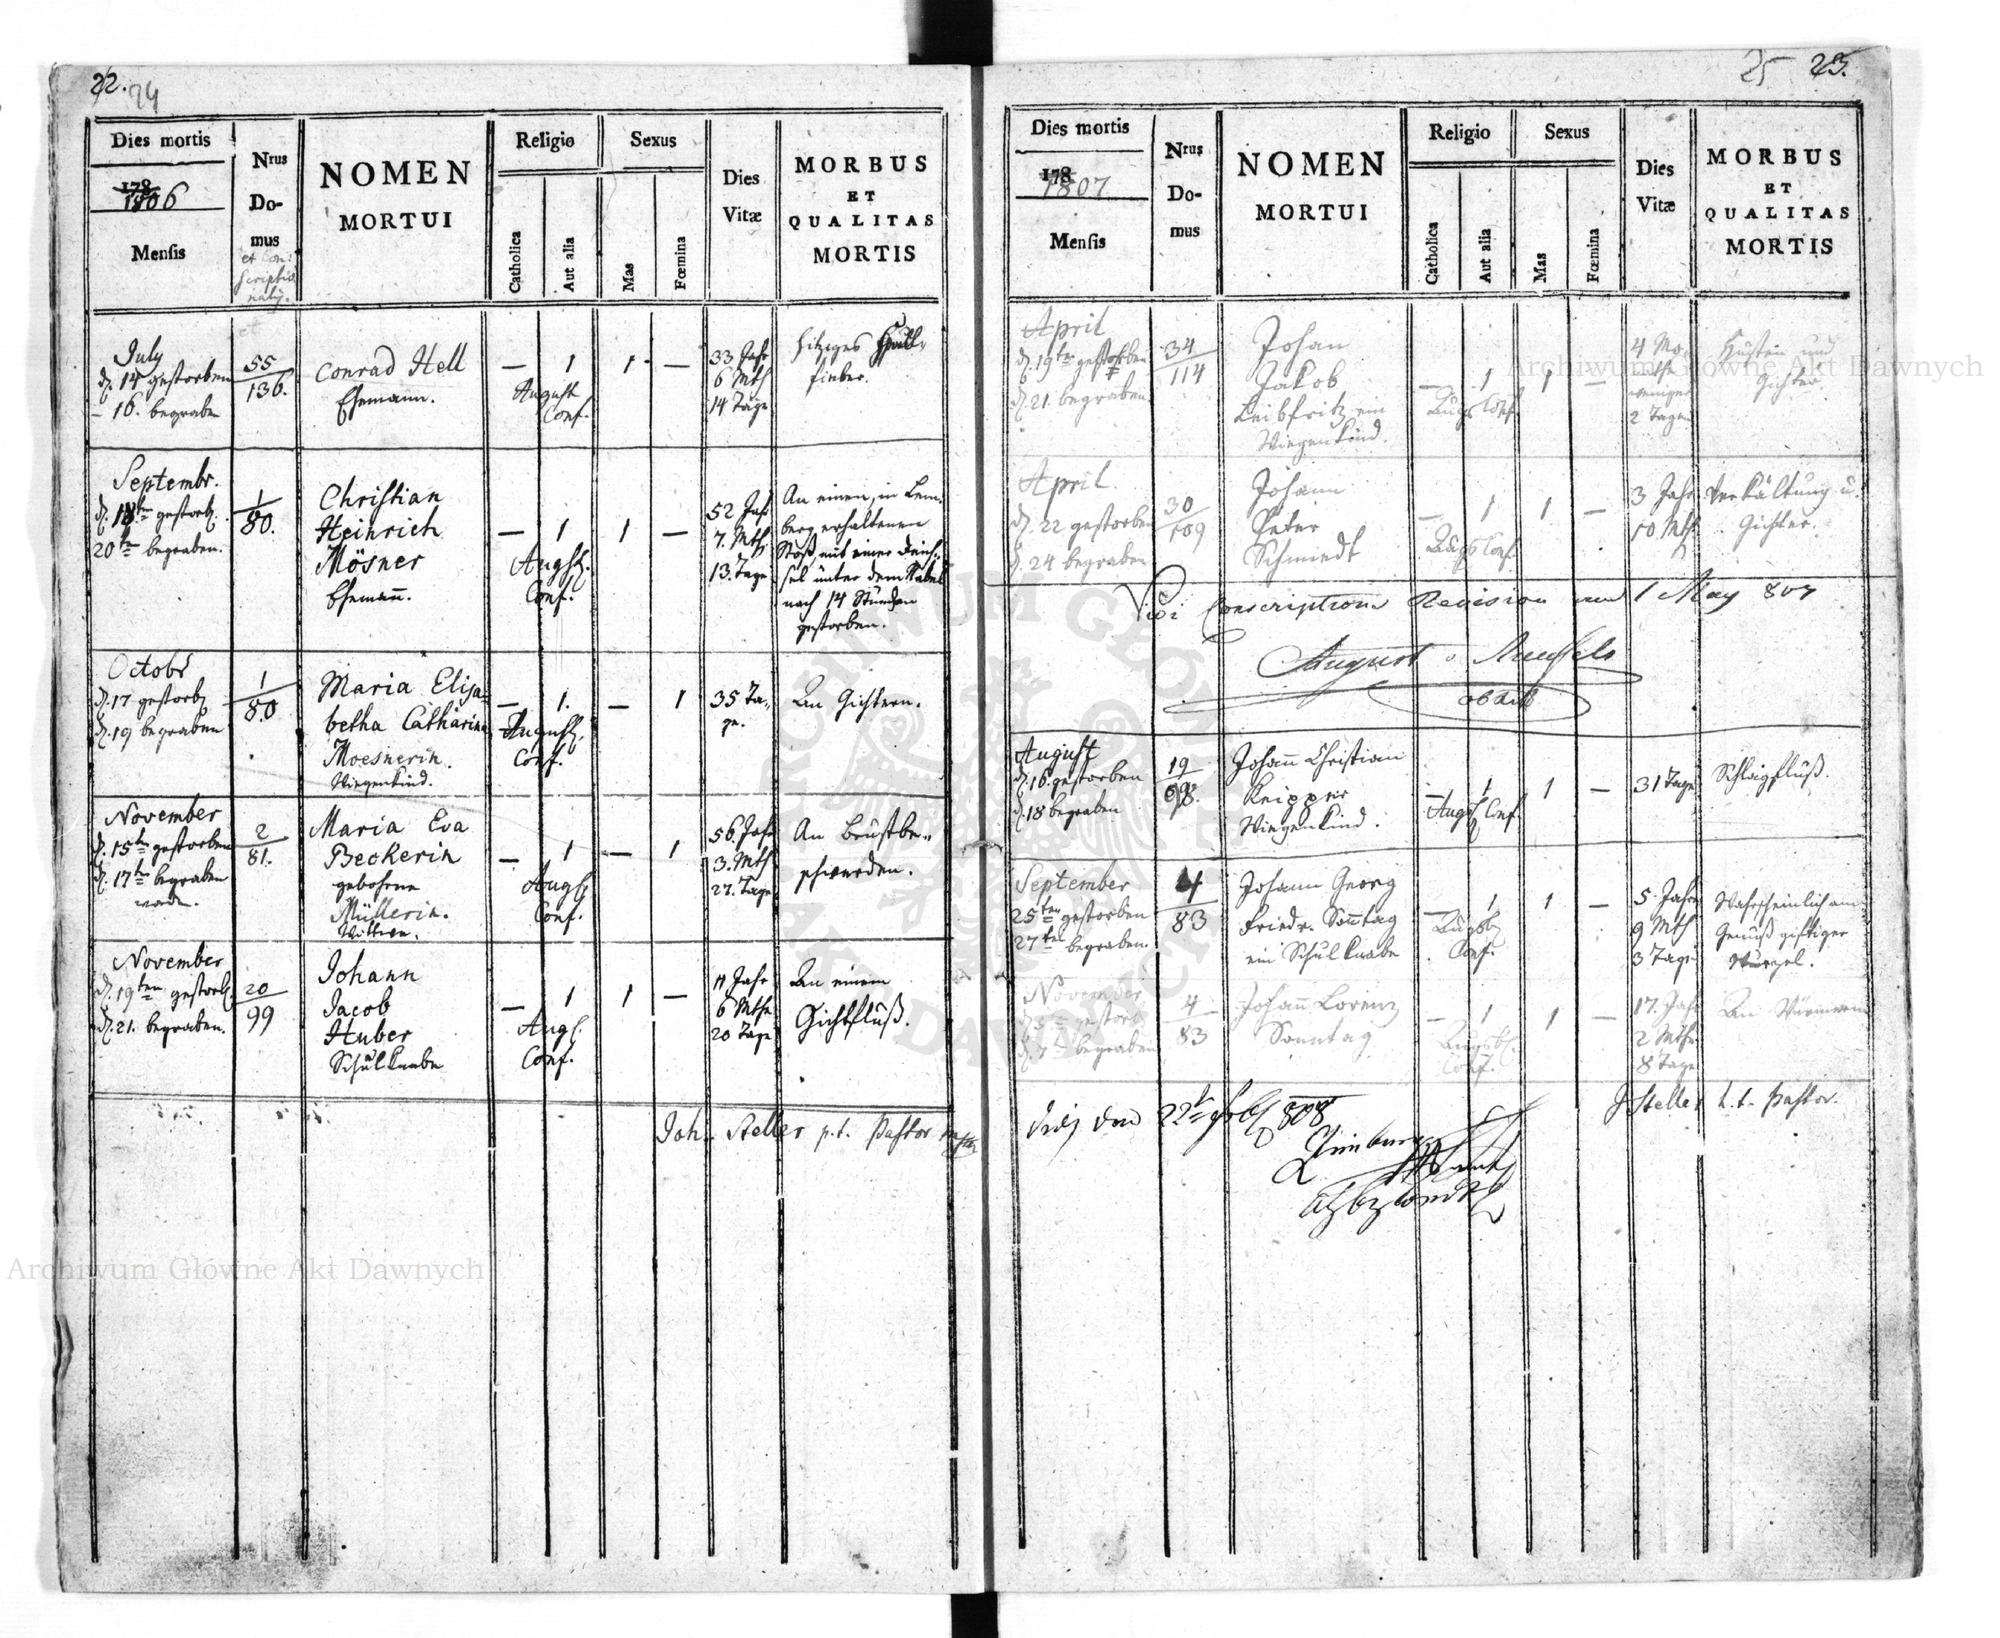 22. 24
Dies mortis
178
1806
Mensis
Nrus
Do-
mus
et Con-
scriptio
nalis.
NOMEN
MORTUI
Religio
Catholica
Aut alia
Sexus
Mas
Fœmina
Dies
Vitæ
MORBUS
ET
QUALITAS
MORTIS
July
d. 14 gestorben
– 16. begraben
55
136.
Conrad Hell
Ehemann.
— 1
Augsb.
Conf.
1 —
33 Jahr
6 Mth
14 Tage
hitziges
fieber.
Septembr.
d. 18ten gestorb.
20ten begraben.
1
80.
Christian
Heinrich
Mösner
Ehemann.
— 1
Augsb.
Conf.
1 —
52 Jahr
7. Mth.
13. Tage
An einen, in Lem-
berg erhaltenen
Stoß mit einer Deich-
sel unter dem Nabel
nach 14 Stunden
gestorben.
Octobr
d. 17 gestorb
d. 19 begraben
1
80
Maria Elisa-
betha Catharina
Moesnerin.
Wiegenkind.
— 1.
Augsb.
Conf.
— 1
35 Ta-
ge.
An Gichtern.
November
d. 15ten gestorben
d. 17ten begraben
worden.
2
81.
Maria Eva
Beckerin
gebohrne
Müllerin.
Wittwe.
— 1
Augsb
Conf.
— 1
56. Jahr
3. Mth
27. Tage
An Brustbe-
schwerden.
November
d. 19ten gestorb.
d. 21. begraben.
20
99
Johann
Jacob
Huber
Schulknabe
— 1
Augs.
Conf.
1 —
11 Jahr
6 Mthe
20 Tage
An einem
Gichtfluß.
Joh. Steller p.t. Pastor
25 23.
Dies mortis
178
1807
Mensis
Nrus
Do-
mus
NOMEN
MORTUI
Religio
Catholica
Aut alia
Sexus
Mas
Fœmina
Dies
Vitæ
MORBUS
ET
QUALITAS
MORTIS
April
d. 19ten gestorben
d. 21. begraben.
34
114
Johan
Jakob
Leibfritz ein
Wiegenkind.
— 1
Augs Conf.
1 —
4 Mo-
nathe
weniger
2 Tage
Husten und
Gichter.
April.
d. 22 gestorben
d. 24 begraben
30
109
Johann
Peter
Schmiedt
— 1
Augs Conf.
1 —
3 Jahr
10 Mth.
Verkältung u.
Gichter.
Vidi Conscriptions Revision am 1 May 807
August v
August
d. 16. gestorben
d. 18 begraben
19
98.
Johann Christian
Knipper
Wiegenkind.
— 1
Augsb Conf.
1 —
31 Tage
Schlagfluß.
September
25ten gestorben
27ten begraben.
4
83
Johann Georg
Friedr. Sonntag
ein Schulknabe
— 1
Augsb
Conf.
1 —
5 Jahre
9 Mth
3 Tage
Wahrscheinlich am
Genuß giftiger
Wurzel.
November
d. 5ten gestorb
d. 7ten begraben
4
83
Johann Lorenz
Sonntag
— 1
Augsb.
Conf.
1 —
17. Jahr
2 Mthe
8 Tage
An Würmern
J Steller t. t. Pastor.
Vidi den 22ten 808
Archiwum Główne Akt Dawnych
Archiwum Główne Akt Dawnych
ARCHIWUM GŁÓWNE AKT DAWNYCH